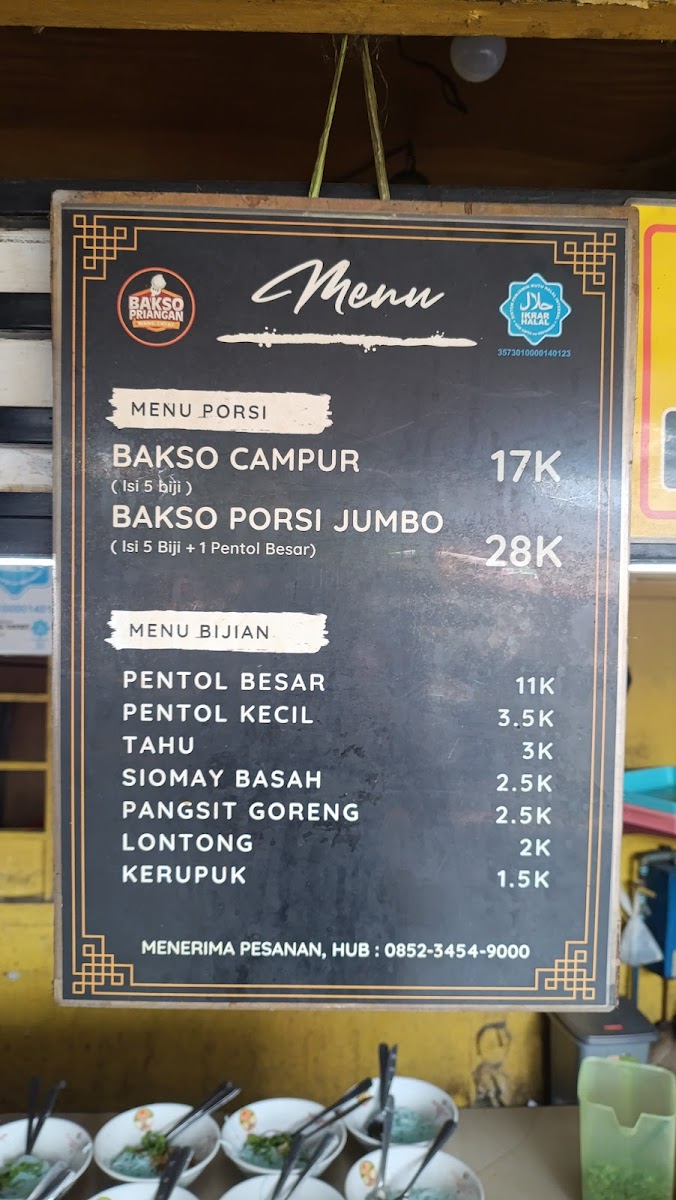 Menu
BAKSO
PRIANGAN
IKRAR
HALAL
3573010000140123
MENU PORSI
BAKSO CAMPUR 17K
( Isi 5 biji )
BAKSO PORSI JUMBO 28K
( Isi 5 Biji + 1 Pentol Besar)
MENU BIJIAN
PENTOL BESAR 11K
PENTOL KECIL 3.5K
TAHU 3K
SIOMAY BASAH 2.5K
PANGSIT GORENG 2.5K
LONTONG 2K
KERUPUK 1.5K
MENERIMA PESANAN, HUB : 0852-3454-9000